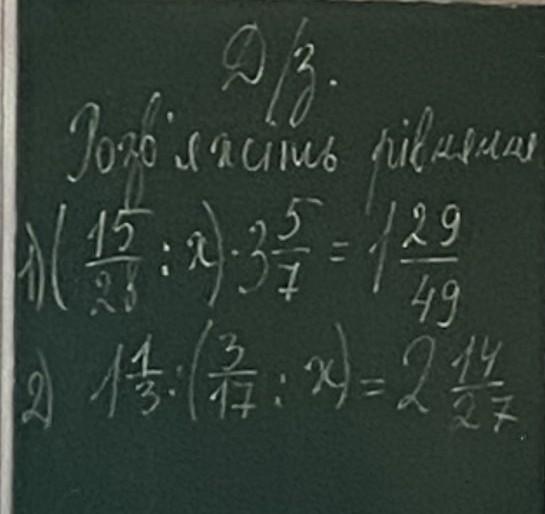 Д/з.
Розв'яжіть рівняння
1) (15/28 : x) · 3 5/7 = 1 29/49
2) 1 1/3 : (3/17 : x) = 2 14/27